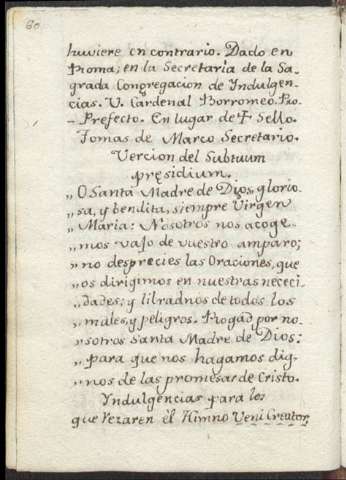 60.
huviere en contrario. Dado en
Roma, en la Secretaría de la Sa-
grada Congregacion de Indulgen-
cias. V. Cardenal Borromeo. Pro-
- Prefecto. En lugar de ✝ Sello.
Tomas de Marco Secretario.
Vercion del Subtuum
presidium.
„ O Santa Madre de Dios, glorio
„ sa, y bendita, siempre Virgen
„ Maria: Nosotros nos acoge-
„ mos vajo de vuestro amparo;
„ no desprecies las Oraciones, que
„ os dirigimos en nuestras nececi
„ dades; y libradnos de todos los
„ males, y peligros. Rogad por no-
„ sotros Santa Madre de Dios:
„ para que nos hagamos dig-
„ nos de las promesas de Cristo.
Yndulgencias para los
que Rezaren èl Himno Veni Creator,